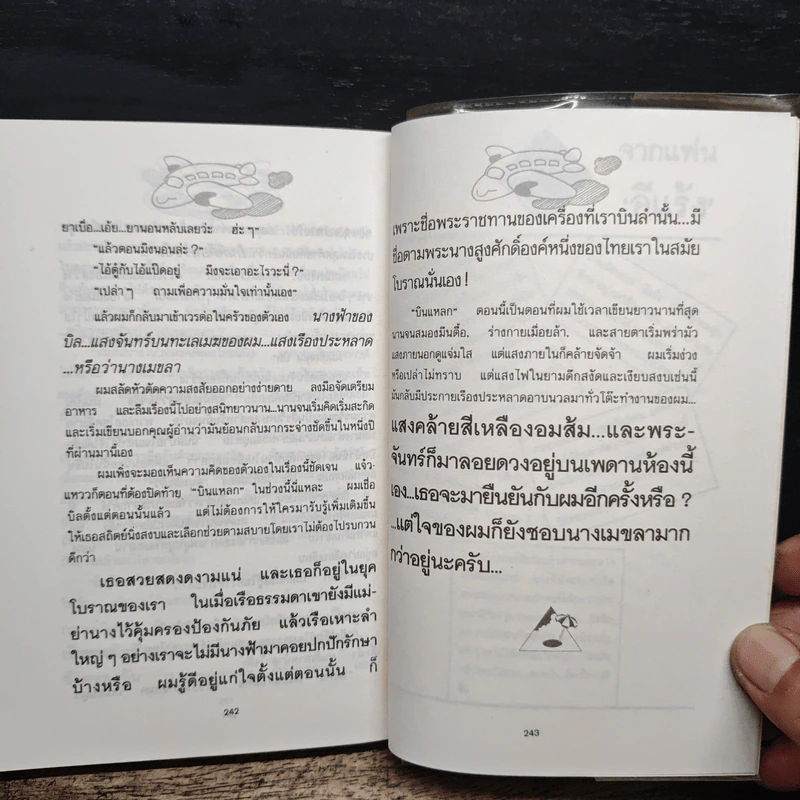 ยาเบื่อ...เอ้ย...ยานอนหลับเลยว่ะ ฮ่ะๆ"
"แล้วตอนมึงนอนล่ะ?"
"ไอ้ตู้กับไอ้แป๊ดอยู่ มึงจะเอาอะไรวะนี่?"
"เปล่าๆ ถามเพื่อความมั่นใจเท่านั้นเอง"
แล้วผมก็กลับมาเข้าเวรต่อในครัวของตัวเอง นางฟ้าของ
บิล...แสงจันทร์บนทะเลเมฆของผม...แสงเรืองประหลาด
...หรือว่านางเมขลา
ผมสลัดหัวตัดความสงสัยออกอย่างง่ายดาย ลงมือจัดเตรียม
อาหาร และลืมเรื่องนี้ไปอย่างสนิทยาวนาน...นานจนเริ่มคิดเริ่มสะกิด
และเริ่มเขียนบอกคุณผู้อ่านว่ามันย้อนกลับมากระจ่างชัดขึ้นในหนึ่งปี
ที่ผ่านมานี้เอง
ผมเพิ่งจะมองเห็นความคิดของตัวเองในเรื่องนี้ชัดเจน แจ๋ว-
แหววก็ตอนที่ต้องปิดท้าย "บินแหลก" ในช่วงนี้นี่แหละ ผมเชื่อ
บิลตั้งแต่ตอนนั้นแล้ว แต่ไม่ต้องการให้ใครมารับรู้เพิ่มเติมขึ้น
ให้เธอสถิตย์นิ่งสงบและเลือกช่วยตามสบายโดยเราไม่ต้องไปรบกวน
ดีกว่า
เธอสวยสดงดงามแน่ และเธอก็อยู่ในยุค
โบราณของเรา ในเมื่อเรือธรรมดาเขายังมีแม่-
ย่านางไว้คุ้มครองป้องกันภัย แล้วเรือเหาะลำ
ใหญ่ๆ อย่างเราจะไม่มีนางฟ้ามาคอยปกปักรักษา
บ้างหรือ ผมรู้ดีอยู่แก่ใจตั้งแต่ตอนนั้น ก็
242
เพราะชื่อพระราชทานของเครื่องที่เราบินลำนั้น...มี
ชื่อตามพระนางสูงศักดิ์องค์หนึ่งของไทยเราในสมัย
โบราณนั่นเอง!
"บินแหลก" ตอนนี้เป็นตอนที่ผมใช้เวลาเขียนยาวนานที่สุด
นานจนสมองมึนตื้อ. ร่างกายเมื่อยล้า. และสายตาเริ่มพร่ามัว
แสงภายนอกดูแจ่มใส แต่แสงภายในก็คล้ายจัดจ้า ผมเริ่มง่วง
หรือเปล่าไม่ทราบ แต่แสงไฟในยามดึกสงัดและเงียบสงบเช่นนี้
มันกลับมีประกายเรืองประหลาดอาบนวลมาทั่วโต๊ะทำงานของผม...
แสงคล้ายสีเหลืองอมส้ม...และพระ-
จันทร์ก็มาลอยดวงอยู่บนเพดานห้องนี้
เอง...เธอจะมายืนยันกับผมอีกครั้งหรือ?
...แต่ใจของผมก็ยังชอบนางเมขลามาก
กว่าอยู่นะครับ...
243